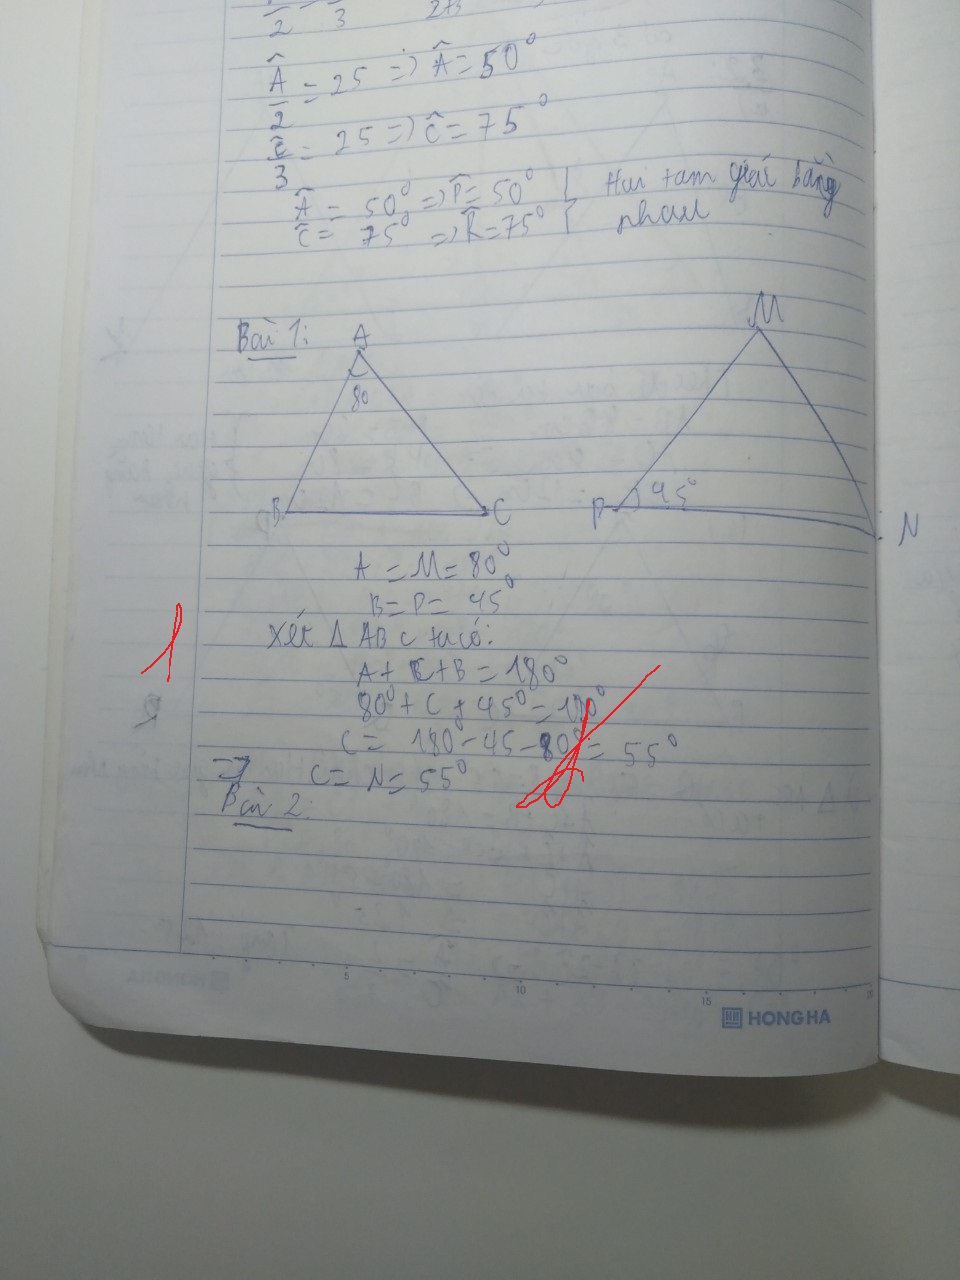 2 3
Â/2 = 25 => Â = 50°
Ĉ/3 = 25 => Ĉ = 75°
Â = 50° => P̂ = 50° } Hai tam giác bằng
Ĉ = 75° => R̂ = 75° } nhau
Bài 1:
A
M
80
B C P 45° N
A = M = 80°
B = P = 45°
Xét Δ ABC ta có:
A + C + B = 180°
80° + C + 45° = 180°
C = 180° - 45 - 80° = 55°
=> C = N = 55°
Bài 2:
5 10 15 20
HONG HA